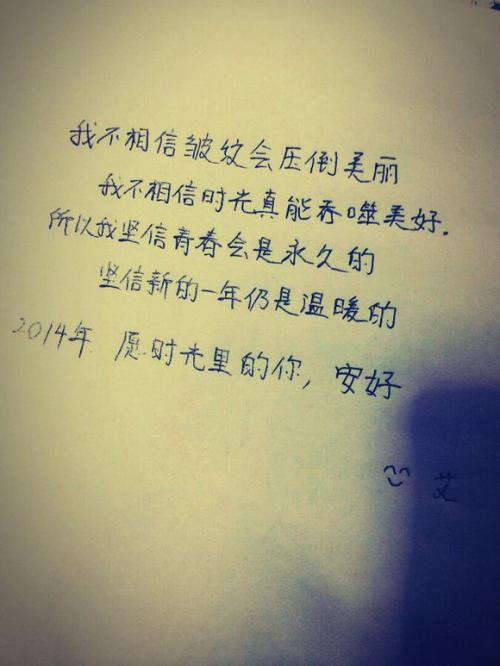 我不相信皱纹会压倒美丽
我不相信时光真能吞噬美好.
所以我坚信青春会是永久的
坚信新的一年仍是温暖的
2014年 愿时光里的你，安好
艾